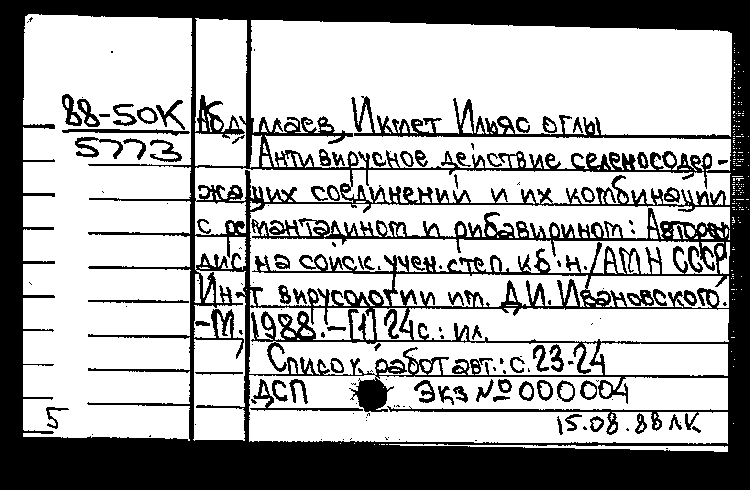 88-50К
5773
Абдуллаев, Икмет Ильяс оглы
Антивирусное действие селеносодер-
жащих соединений и их комбинации
с ремантадином и рибавирином: Автореф
дис на соиск. учен. степ. к.б.н. /АМН СССР
Ин-т вирусологии им. Д.И. Ивановского.
-М., 1988.-[1] 24 с.: ил.
Список работ авт.: с. 23-24
ДСП Экз № 000004
5
15.08.88 ЛК